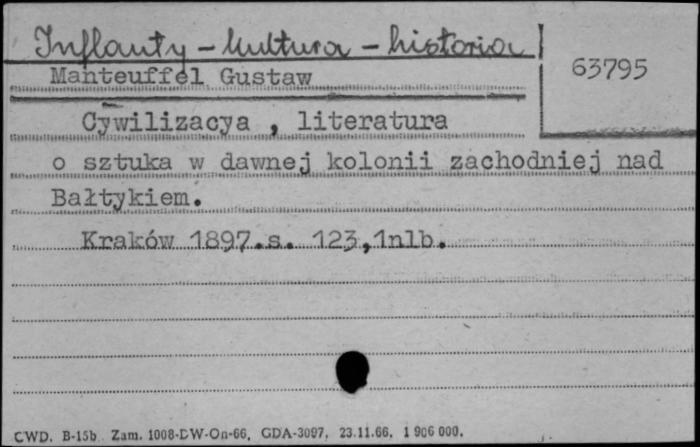 Inflanty - kultura - historia
63795
Manteuffel Gustaw
Cywilizacya , literatura
o sztuka w dawnej kolonii zachodniej nad
Bałtykiem.
Kraków 1897.s. 123,1nlb.
CWD. B-15b. Zam. 1008-DW-On-66, GDA-3097, 23.11.66, 1 906 000.